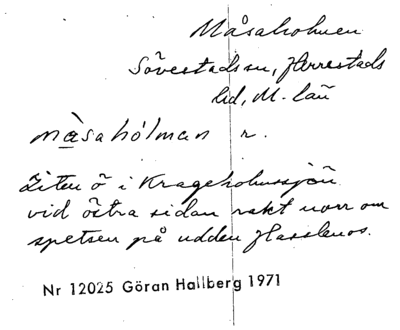 Måsaholmen
Sövestads sn, Herrestads
hd, M. län
måsahòlman r.
Liten ö i Krageholmssjön
vid östra sidan rakt norr om
spetsen på udden Hasslanos.
Nr 12025 Göran Hallberg 1971